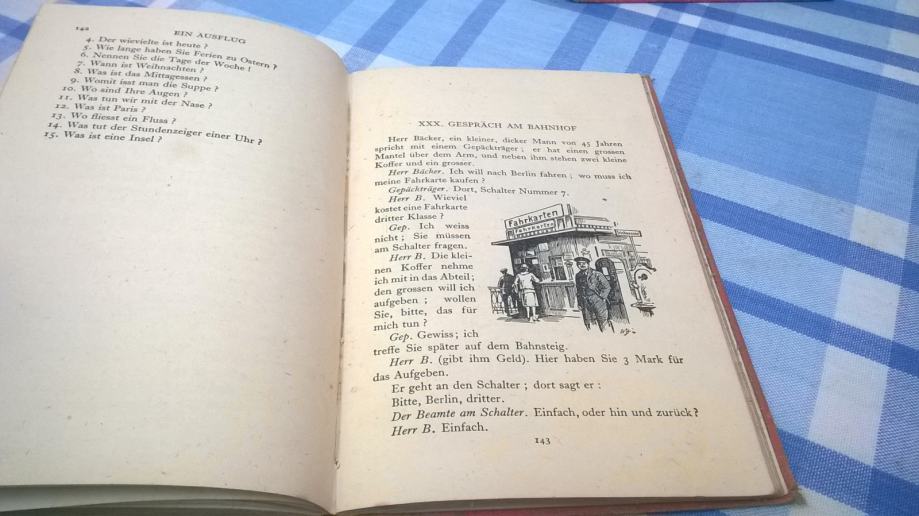 142
EIN AUSFLUG
4. Der wievielte ist heute ?
5. Wie lange haben Sie Ferien zu Ostern ?
6. Nennen Sie die Tage der Woche !
7. Wann ist Weihnachten ?
8. Was ist das Mittagessen ?
9. Womit isst man die Suppe ?
10. Wo sind Ihre Augen ?
11. Was tun wir mit der Nase ?
12. Was ist Paris ?
13. Wo fliesst ein Fluss ?
14. Was tut der Stundenzeiger einer Uhr ?
15. Was ist eine Insel ?
XXX. GESPRÄCH AM BAHNHOF
Herr Bäcker, ein kleiner, dicker Mann von 45 Jahren
spricht mit einem Gepäckträger ; er hat einen grossen
Mantel über dem Arm, und neben ihm stehen zwei kleine
Koffer und ein grosser.
Herr Bäcker. Ich will nach Berlin fahren ; wo muss ich
meine Fahrkarte kaufen ?
Gepäckträger. Dort, Schalter Nummer 7.
Herr B. Wieviel
kostet eine Fahrkarte
dritter Klasse ?
Gep. Ich weiss
nicht ; Sie müssen
am Schalter fragen.
Herr B. Die klei-
nen Koffer nehme
ich mit in das Abteil ;
den grossen will ich
aufgeben ; wollen
Sie, bitte, das für
mich tun ?
Fahrkarten
Fahrkarten
Gep. Gewiss ; ich
treffe Sie später auf dem Bahnsteig.
Herr B. (gibt ihm Geld). Hier haben Sie 3 Mark für
das Aufgeben.
Er geht an den Schalter ; dort sagt er :
Bitte, Berlin, dritter.
Der Beamte am Schalter. Einfach, oder hin und zurück ?
Herr B. Einfach.
143